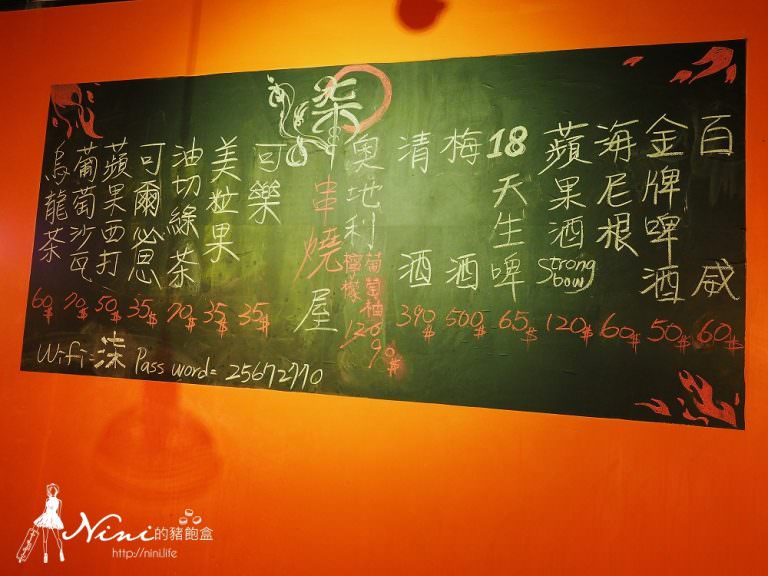 百威 60$
金牌啤酒 50$
海尼根 60$
蘋果酒 Strong bow 120$
18天生啤 65$
梅酒 500$
清酒 390$
奧地利 葡萄柚 檸檬 120 90$
柒串燒屋
可樂 35$
美粒果 35$
油切綠茶 70$
可爾必思 35$
蘋果西打 50$
葡萄沙瓦 70$
烏龍茶 60$
Wifi=柒 Pass word= 25672770
Nini的豬飽盒
http://nini.life